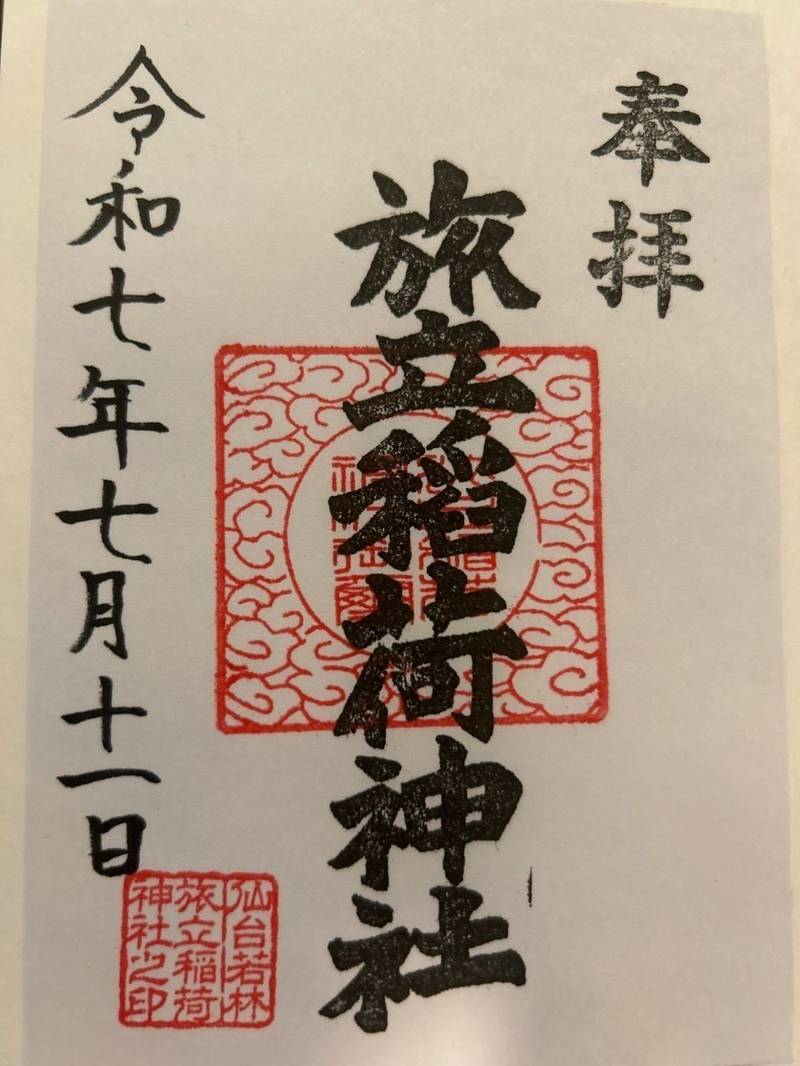 奉拝
旅立稲荷神社
令和七年七月十一日
仙台若林
旅立稲荷
神社之印